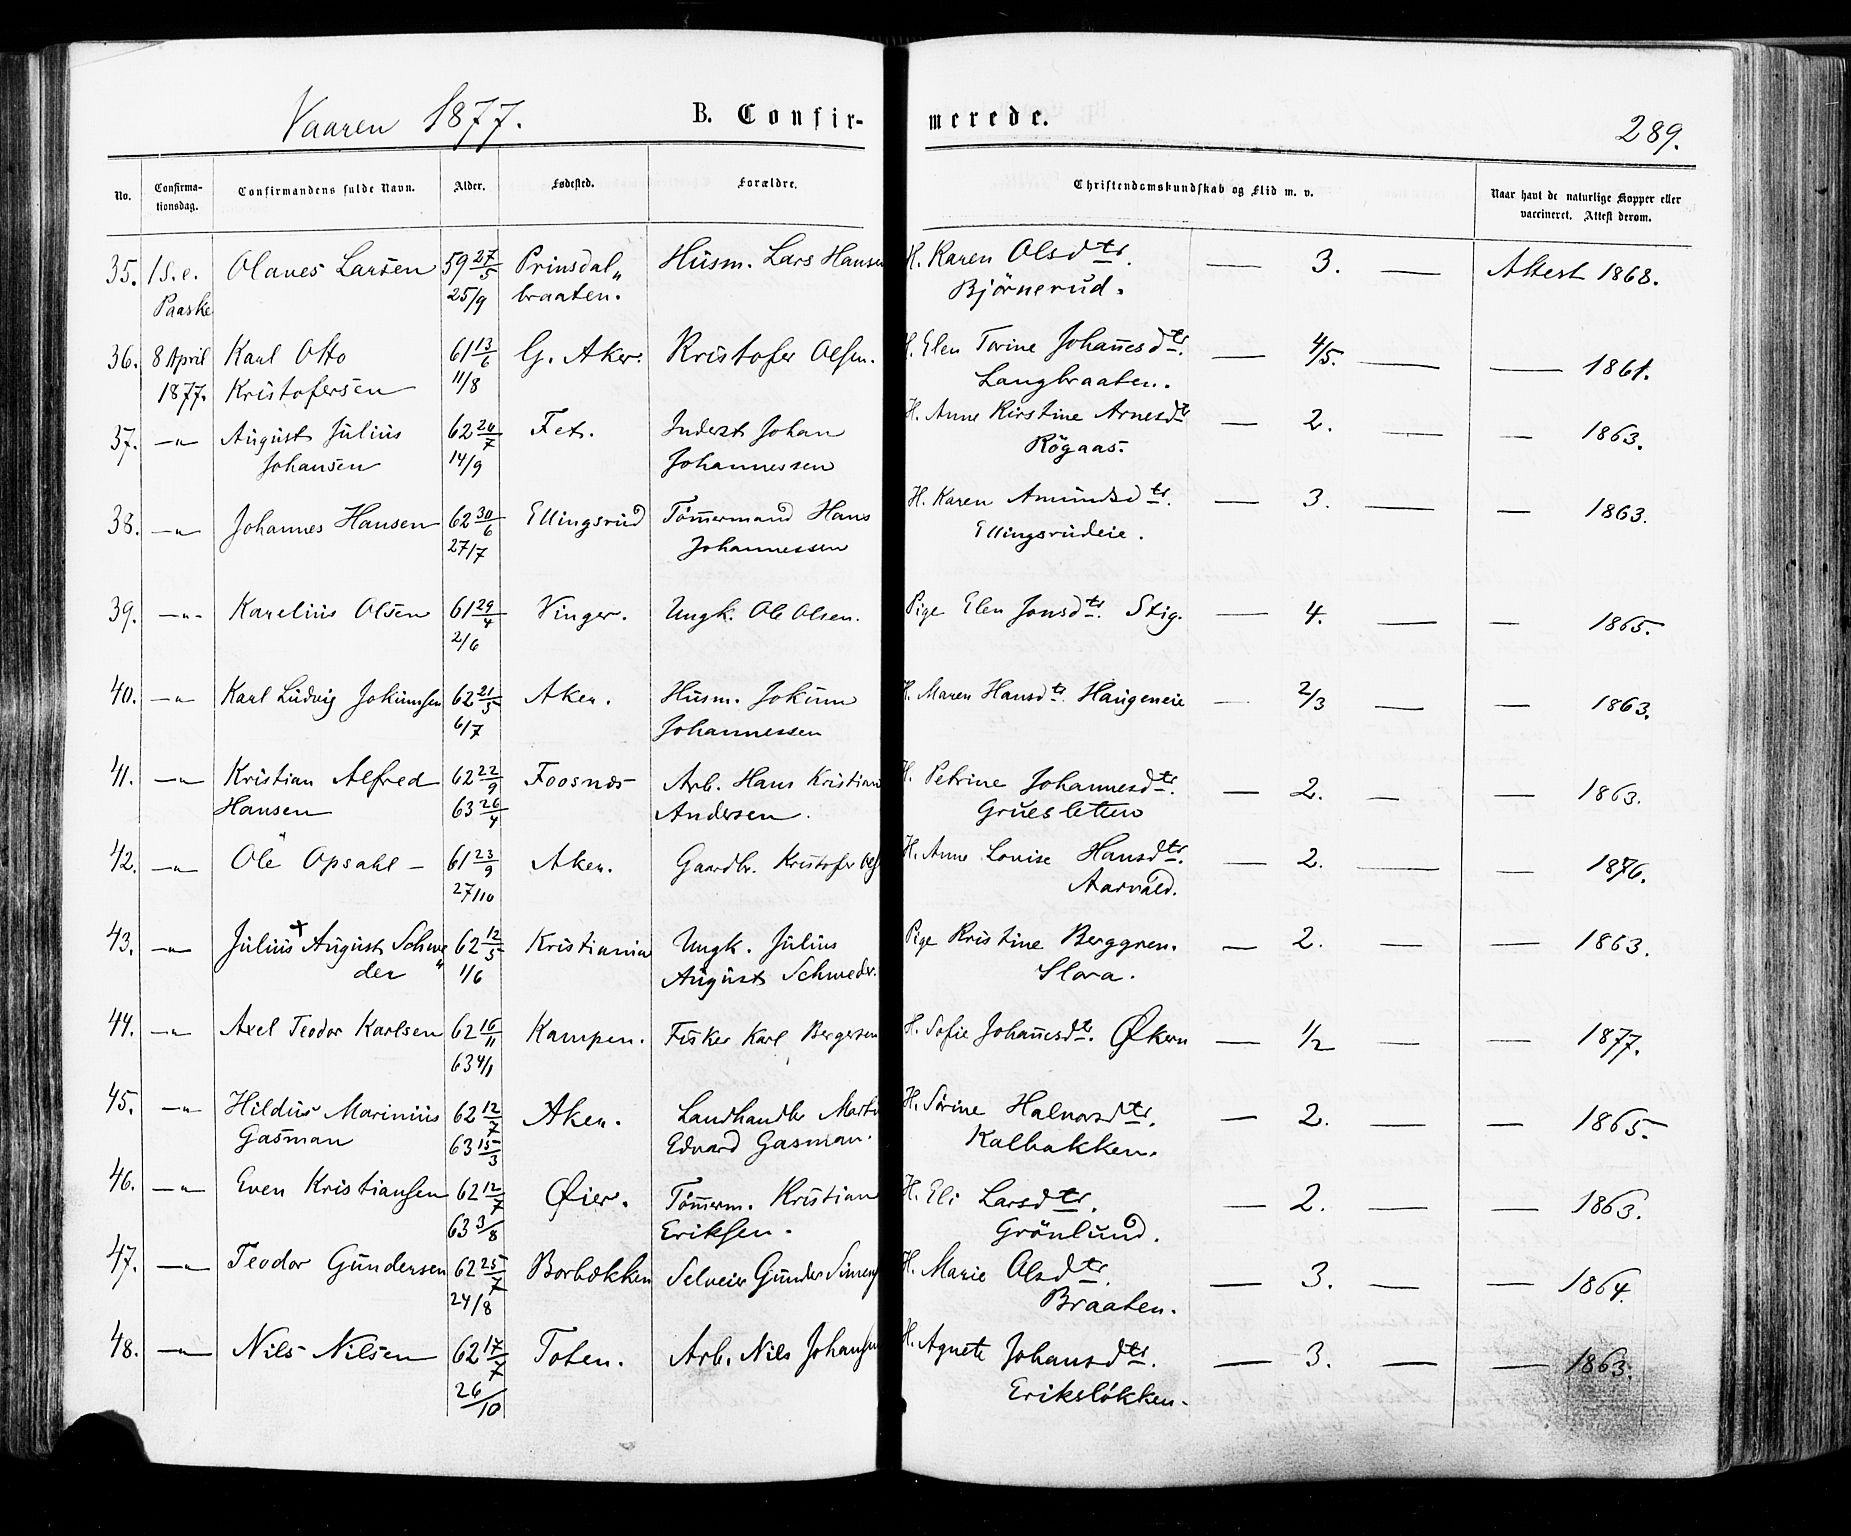 Vaaren 1877. B. Confir- merede. 289.
No. Confirma-tionsdag. Confirmandens fulde Navn. Alder. Fødested. Forældre. Christendomskundskab og Flid m. v. Naar havt de naturlige Kopper eller vaccineret. Attest derom.
35. 1 S. e. Olaves Larsen 59 27/5 Prinsdal„ Husm. Lars Hansen H. Karen Olsdtr. — 3. — Attest 1868.
Paaske 25/9 braaten. Björnerud.
36. 8 April Karl Otto 61 13/6 G. Aker. Kristofer Olsen. H. Elen Torine Johannesdtr. — 4/5. — — 1861.
1877. Kristofersen 11/8 Langbraaten.
37. —„— August Julius 62 20/7 Fet. Inderst Johan H. Anne Kirstine Arnesdtr — 2. — — 1863.
Johansen 14/9 Johannessen Rögaas.
38. —„— Johannes Hansen 62 30/6 Ellingsrud Tömmermand Hans H. Karen Amundsdtr. — 3. — — 1863.
27/7 Johannessen Ellingsrudeie.
39. —„— Karelius Olsen 61 29/4 Vinger. Ungk. Ole Olsen. Pige Elen Jonsdtr. Stig. — 4. — — 1865.
2/6
40. —„— Karl Ludvig Jokumsen 62 21/5 Aker. Husm. Jokum H. Maren Hansdtr. Haugeneie — 2/3 — — 1863.
6/7 Johannessen
41. —„— Kristian Alfred 62 22/9 Foosnæs Arb. Hans Kristian H. Petrine Johannesdtr. — 2. — — 1863.
Hansen 63 26/4 Andersen. Gruesletten
42. —„— Ole Opsahl — 61 23/9 Aker. Gaardbr. Kristofer H. Anne Lovise Hansdtr. — 2. — — 1876.
27/10 Aarvold.
43. —„— Julius + August Schwe„ 62 12/5 Kristiania Ungk. Julius Pige Kristine Berggren. — 2. — — 1863.
der 1/6 August Schweder.
44. —„— Axel Teodor Karlsen 62 16/11 Kampen. Fisker Karl Bergersen H. Sofie Johannesdtr. Økern — 1/2 — — 1877.
63 4/1
45. —„— Hildus Marinius 62 12/7 Aker. Landhandler H. Sørine Halvorsdtr. — 2. — — 1865.
Gasman 63 15/3 Edvard Gasman. Kalbakken.
46. —„— Even Kristiansen 62 12/7 Øier. Tömmerm. Kristian H. Eli Larsdtr. — 2. — — 1863.
63 3/8 Eriksen. Grönlund.
47. —„— Teodor Gundersen 62 25/7 Borbækken Selveier Gunder H. Marie Olsdtr. — 3. — — 1864.
24/8 Braaten.
48. —„— Nils Nilsen 62 17/7 Toten. Arb. Nils Johansen H. Agnete Johansdtr. — 3. — — 1863.
26/10 Erikslökken.